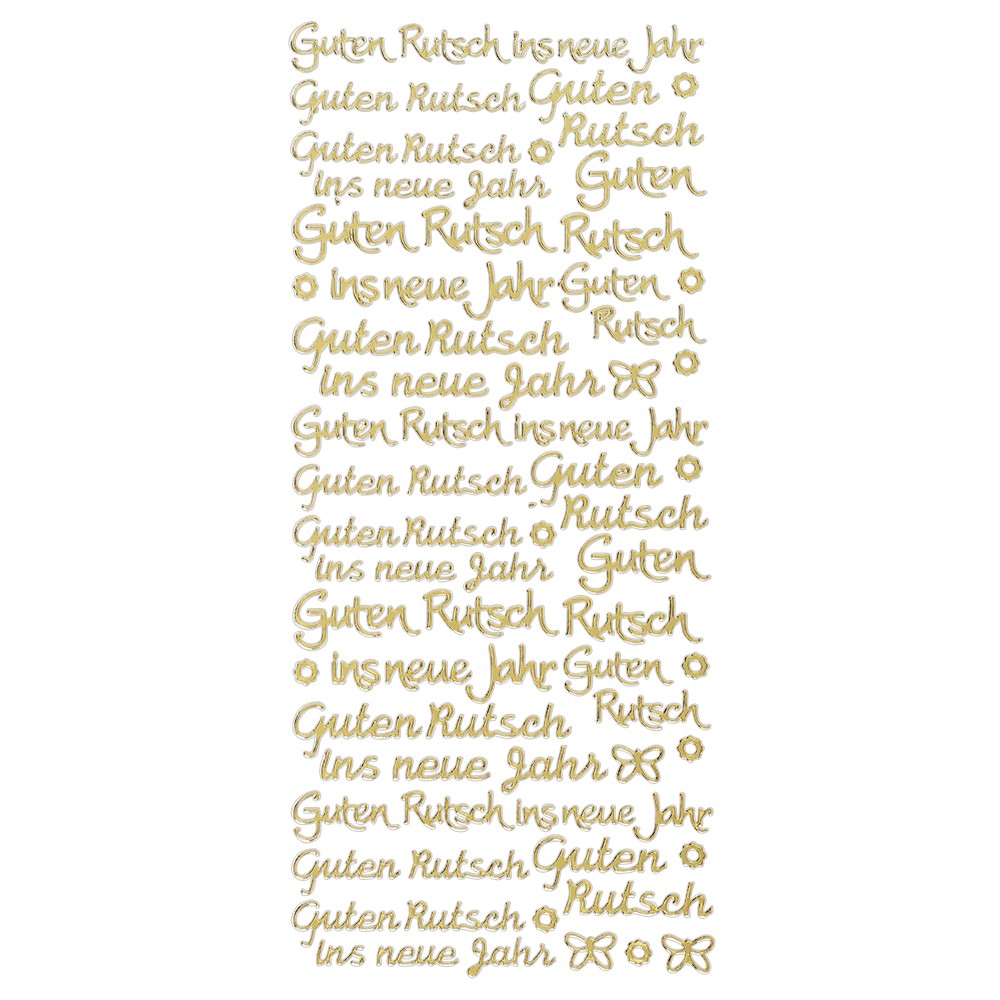 Guten Rutsch ins neue Jahr
Guten Rutsch
Guten
Rutsch
Guten Rutsch
ins neue Jahr
Guten
Rutsch
Guten Rutsch
ins neue Jahr
Guten
Rutsch
Guten Rutsch
ins neue Jahr
Guten Rutsch ins neue Jahr
Guten Rutsch
Guten
Rutsch
Guten Rutsch
ins neue Jahr
Guten
Rutsch
Guten Rutsch
ins neue Jahr
Guten
Rutsch
Guten Rutsch
ins neue Jahr
Guten Rutsch ins neue Jahr
Guten Rutsch
Guten
Rutsch
Guten Rutsch
ins neue Jahr